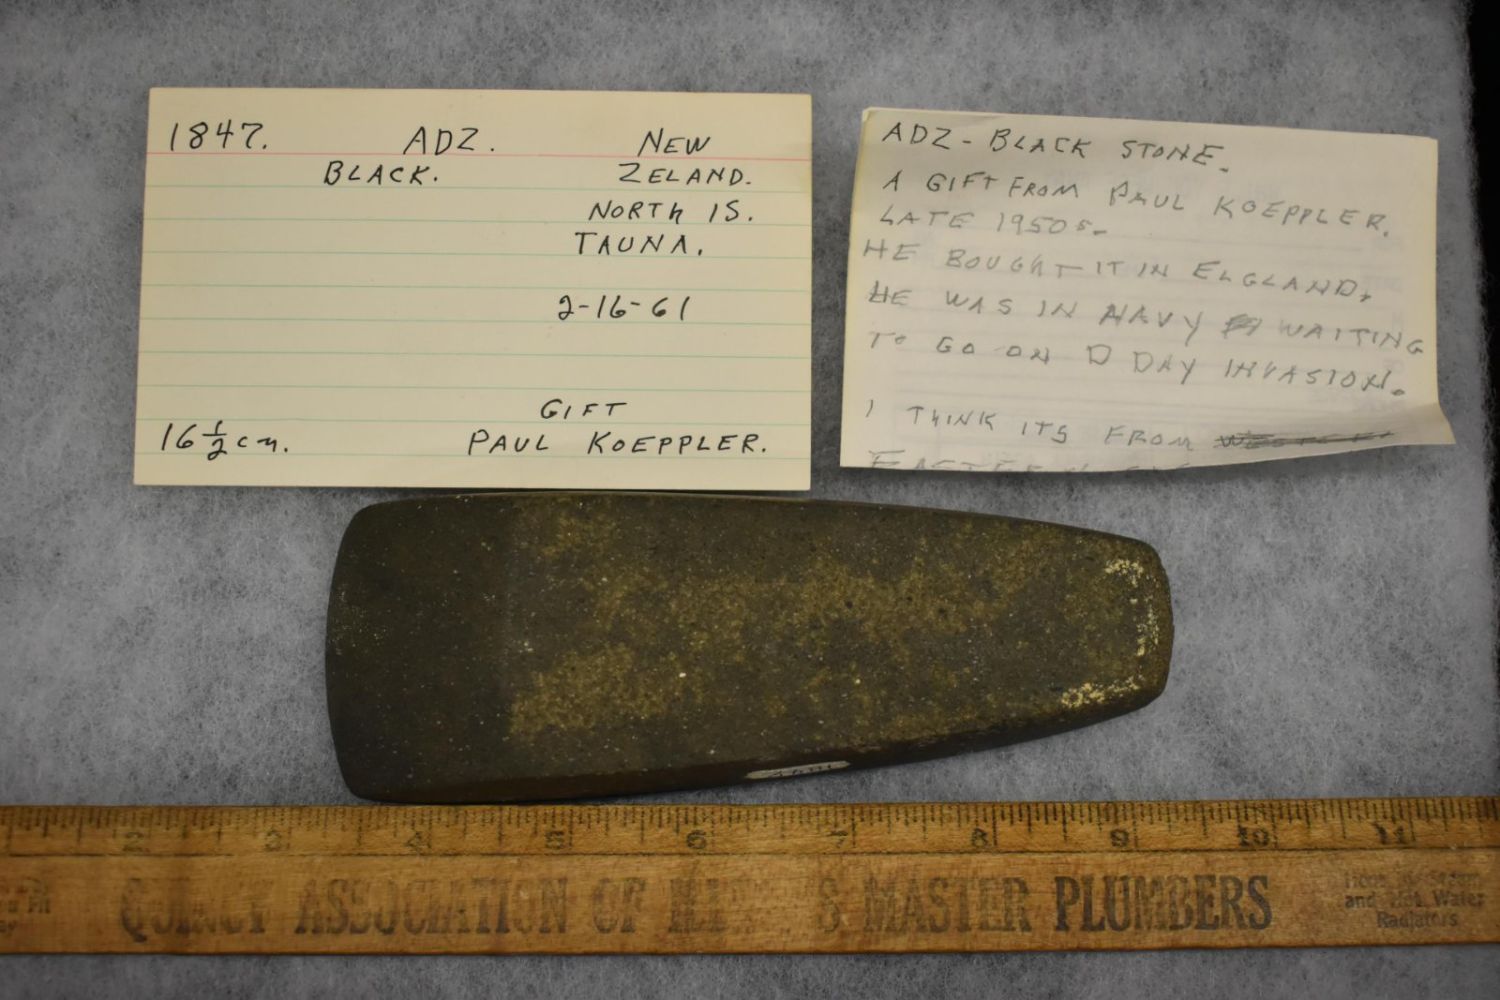 1847. ADZ. NEW
BLACK. ZELAND.
NORTH IS.
TAUNA.
2-16-61
GIFT
16 1/2 cm. PAUL KOEPPLER.
ADZ - BLACK STONE.
A GIFT FROM PAUL KOEPPLER.
LATE 1950s.
HE BOUGHT IT IN ELGLAND,
HE WAS IN NAVY WAITING
TO GO ON D DAY INVASION.
I THINK ITS FROM
2 3 4 5 6 7 8 9 10 11
QUINCY ASSOCIATION OF MASTER PLUMBERS
and Hot Water
Radiators